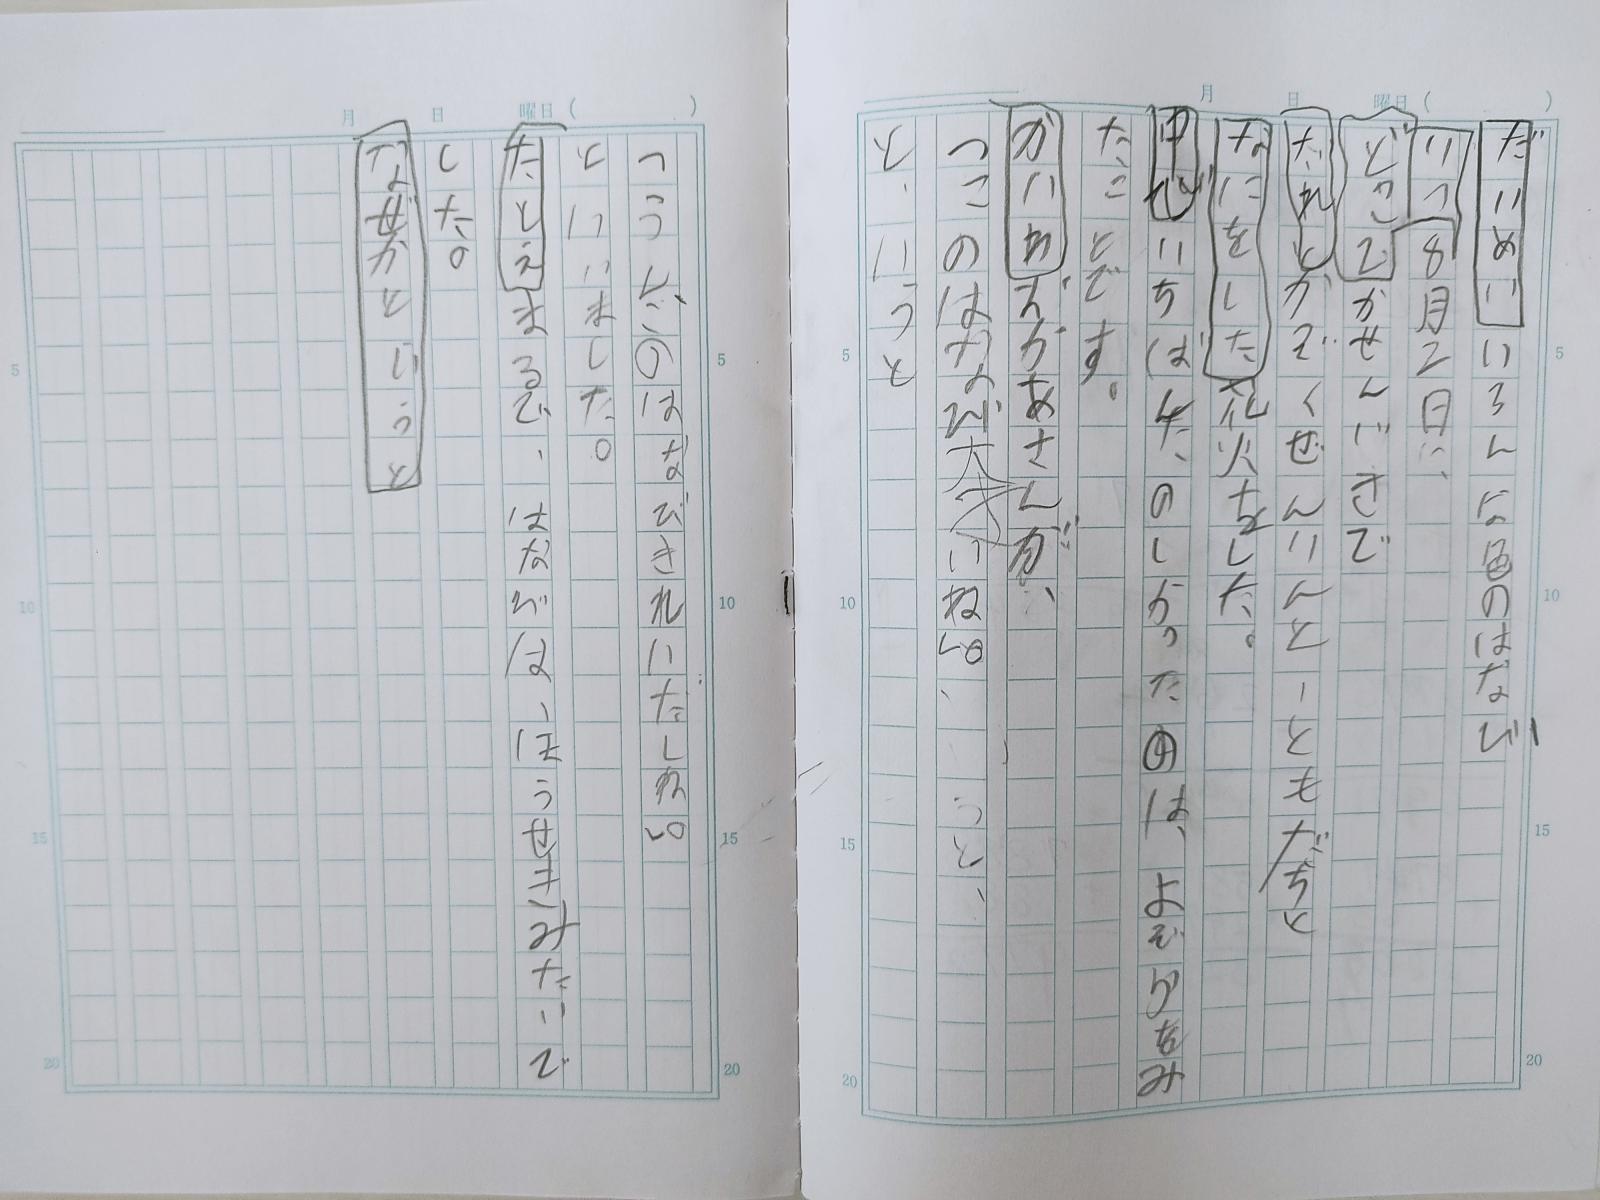 だいめいいろんな色のはなび
いつ8月2日に、
どこでかせんじきで
だれとがぞくぜんいんと一ともだちと
なにをした花火をした。
中でいちばんたのしかったのは、よぞらをみ
たことです。
かいわえがあさんが、
「このはなび大きいねえ、」うと、
と、いうと
「うんこのはなびきれいだしねえ」
といいました。
たとえまるで、はなびは、ほうせきみたいで
した。
なぜかというと
月 日 曜日 ( )
月 日 曜日 ( )
5
10
15
20
5
10
15
20
5
10
15
20
5
10
15
20